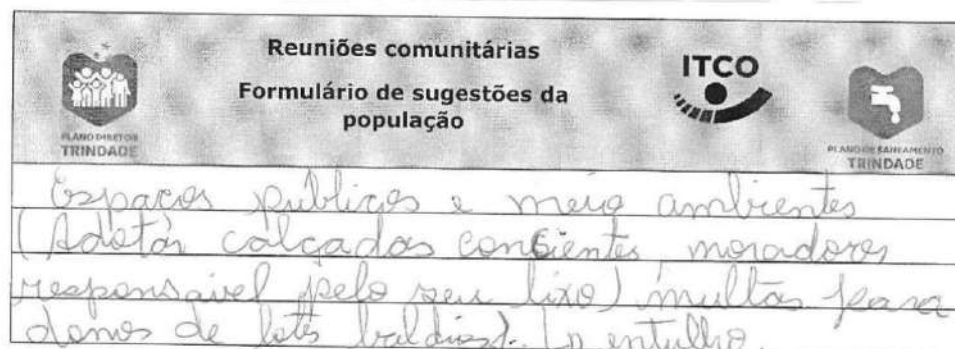 Reuniões comunitárias
Formulário de sugestões da
população
PLANO DIRETOR
TRINDADE
ITCO
PLANO DE SANEAMENTO
TRINDADE
Espaços publicos e meio ambientes
(Adotar calçadas consientes, moradores
responsavel pelo seu lixo) multas para
donos de lotes baldios). entulho.